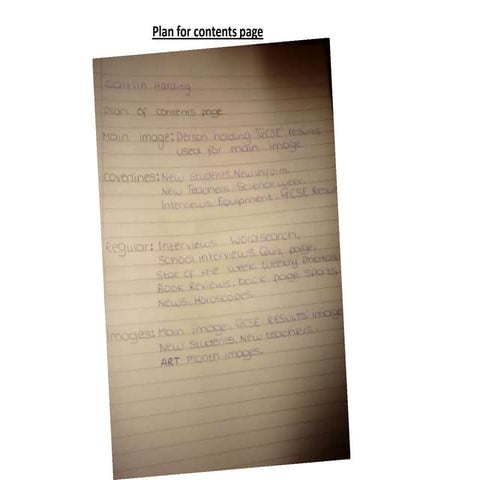 Plan for contents page
Caitlin Harding
Plan of contents page
Main image: Person holding 'GCSE' Results
used for main image
Coverlines: New Students, New uniform
New Teachers, Science week
Interviews, Equipment, GCSE Result
Regular: Interviews, Wordsearch,
School interviews, Quiz page,
Star of the week, Weekly photos
Book Reviews, back page sports
News, Horoscopes
Images: Main image, GCSE RESULTS image
New Students, New teachers,
ART month images.